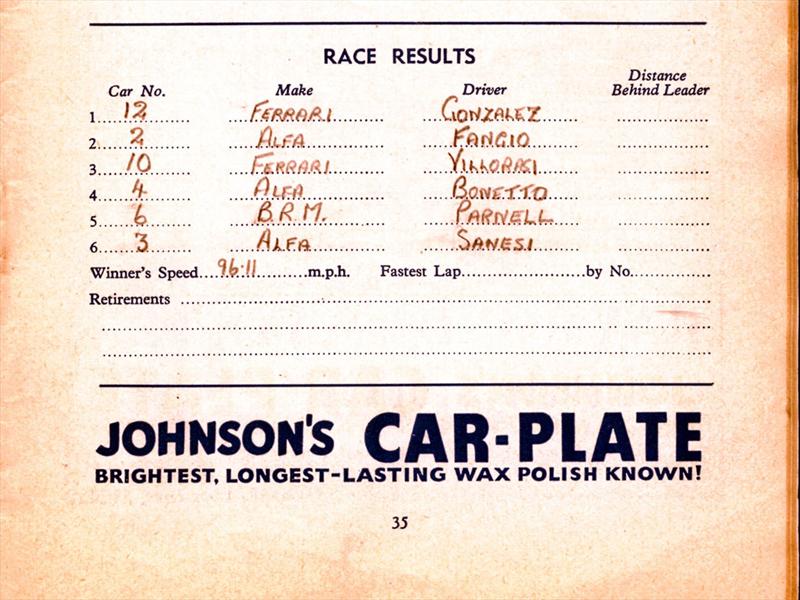 RACE RESULTS
Car No. Make Driver Distance Behind Leader
1 12 FERRARI GONZALEZ
2 2 ALFA FANGIO
3 10 FERRARI VILLORASI
4 4 ALFA BONETTO
5 6 B.R.M. PARNELL
6 3 ALFA SANESI
Winner's Speed 96.11 m.p.h. Fastest Lap by No.
Retirements
JOHNSON'S CAR-PLATE
BRIGHTEST, LONGEST-LASTING WAX POLISH KNOWN!
35